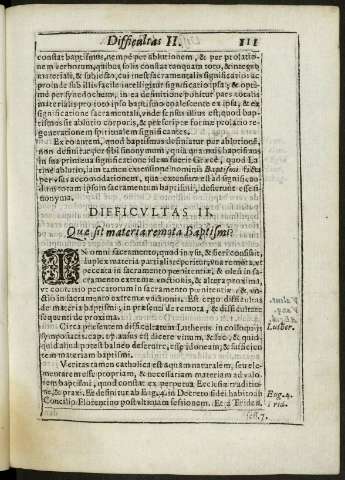 Difficultas II. 111
constat baptismus, nempè per ablutionem, & per prolatio-
nem verborum, quibus solis constat tanquam toto, & integro
materiali, & subiecto, cui inest sacramentalis significatio: ac
proinde sub illis facilè intelligitur significatio ipsa, & opti-
mè per synecdochem, in ea definitione ponitur pars
materialis pro toto ipso baptismo coalescente ex ipsa, & ex
significatione sacramentali, vnde sensus illius est, quod bap-
tismus sit ablutio corporis, & per scriptæ formæ prolatio re-
generationem spiritualem significantes.
Ex eo autem, quod baptismus definiatur per ablutionẽ,
non definitur per sibi synonymum, quia quamuis baptismus
in sua primæua significatione idem fuerit Græcè, quod La-
tinè ablutio, iam tamen extensione nominis Baptismi facta
per vsus accomodationem, qua extensum est ad significan-
dum totam ipsum sacramentum baptismi, deserunt esse si-
nonyma.
DIFFICULTAS II.
Quæ sit materia remota Baptismi?
IN omni sacramento, quod in vsu, & fieri consistit,
duplex materia partialis reperitur, vna remota, vt
peccata in sacramento pœnitentiæ, & oleum in sa-
cramento extremæ vnctionis, & altera proxima,
vt confessio peccatorum in sacramento pœnitentiæ, & vn-
ctio in sacramento extremæ vnctionis. Est ergo difficultas
de materia baptismi, in præsenti de remota, & difficultate
sequenti de proxima.
Circa præsentem difficultatem Lutherus in colloquijs
symposiacis, cap. 17. ausus est dicere vinum, & lac, & quid-
quid aliud potest balneo deseruire, esse idoneam, & sufficien-
tem materiam baptismi.
Luther.
Veritas tamen catholica est aquam naturalem, seu ele-
mentarem esse propriam, & necessariam materiam ad valo-
rem baptismi, quod constat ex perpetua Ecclesiæ traditio-
ne, & praxi. Et definitur ab Eug. 4. in Decreto fidei habito in
Eug. 4.
Concilio Florentino post vltimam sessionem. Et à Trident.
Trid.
sess. 7.